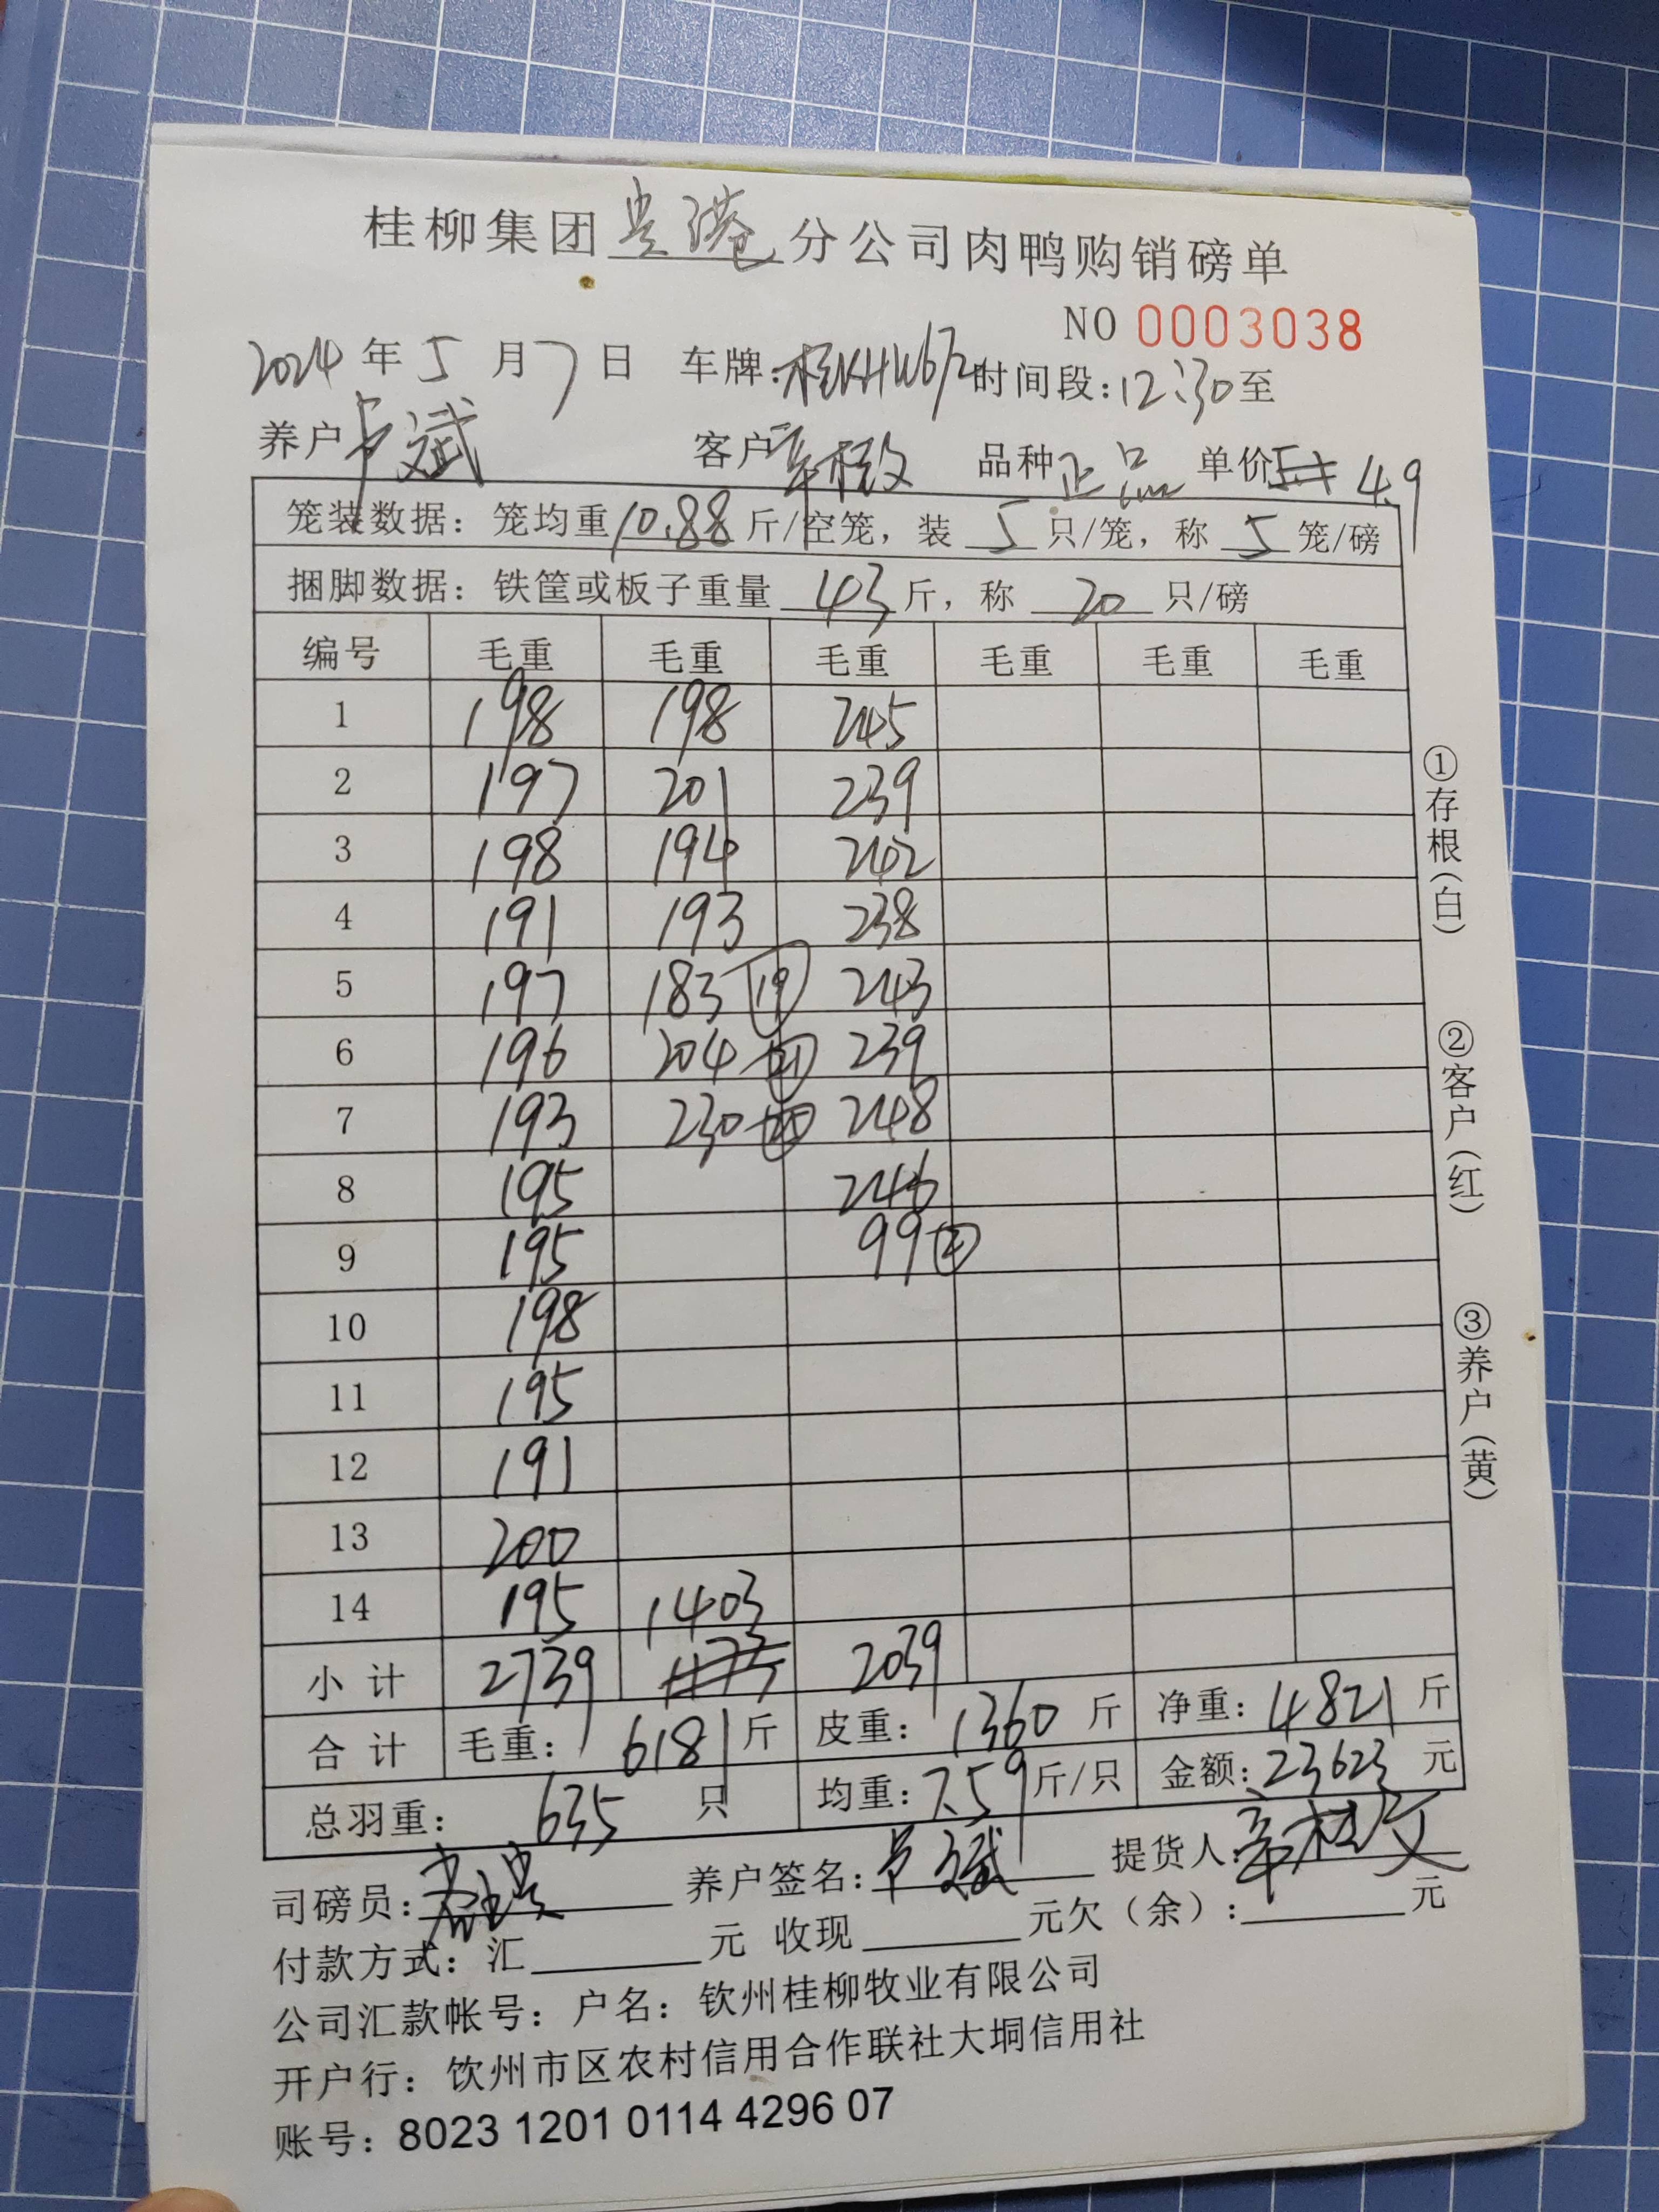 桂柳集团贵港分公司肉鸭购销磅单
NO 0003038
2024年5月7日 车牌:桂KHW672时间段:12:30至
养户卢斌 客户辛桂文 品种正品 单价4.9
笼装数据: 笼均重10.88斤/空笼, 装5只/笼, 称5笼/磅
捆脚数据: 铁筐或板子重量43斤, 称20只/磅
编号 毛重 毛重 毛重 毛重 毛重 毛重
1 198 198 245
2 197 201 239
3 198 194 242
4 191 193 238
5 197 183 (19) 243
6 196 204 (21) 239
7 193 230 248
8 195 246
9 195 99 (2)
10 198
11 195
12 191
13 200
14 195 1403
小计 2739 2039
合计 毛重: 6181斤 皮重: 1360斤 净重: 4821斤
总羽重: 635只 均重: 7.59斤/只 金额: 23623元
司磅员: 养户签名: 卢斌 提货人: 辛桂文
付款方式: 汇______元 收现______元欠(余):______元
公司汇款帐号: 户名: 钦州桂柳牧业有限公司
开户行: 钦州市区农村信用合作联社大垌信用社
账号: 8023 1201 0114 4296 07
①存根(白)
②客户(红)
③养户(黄)